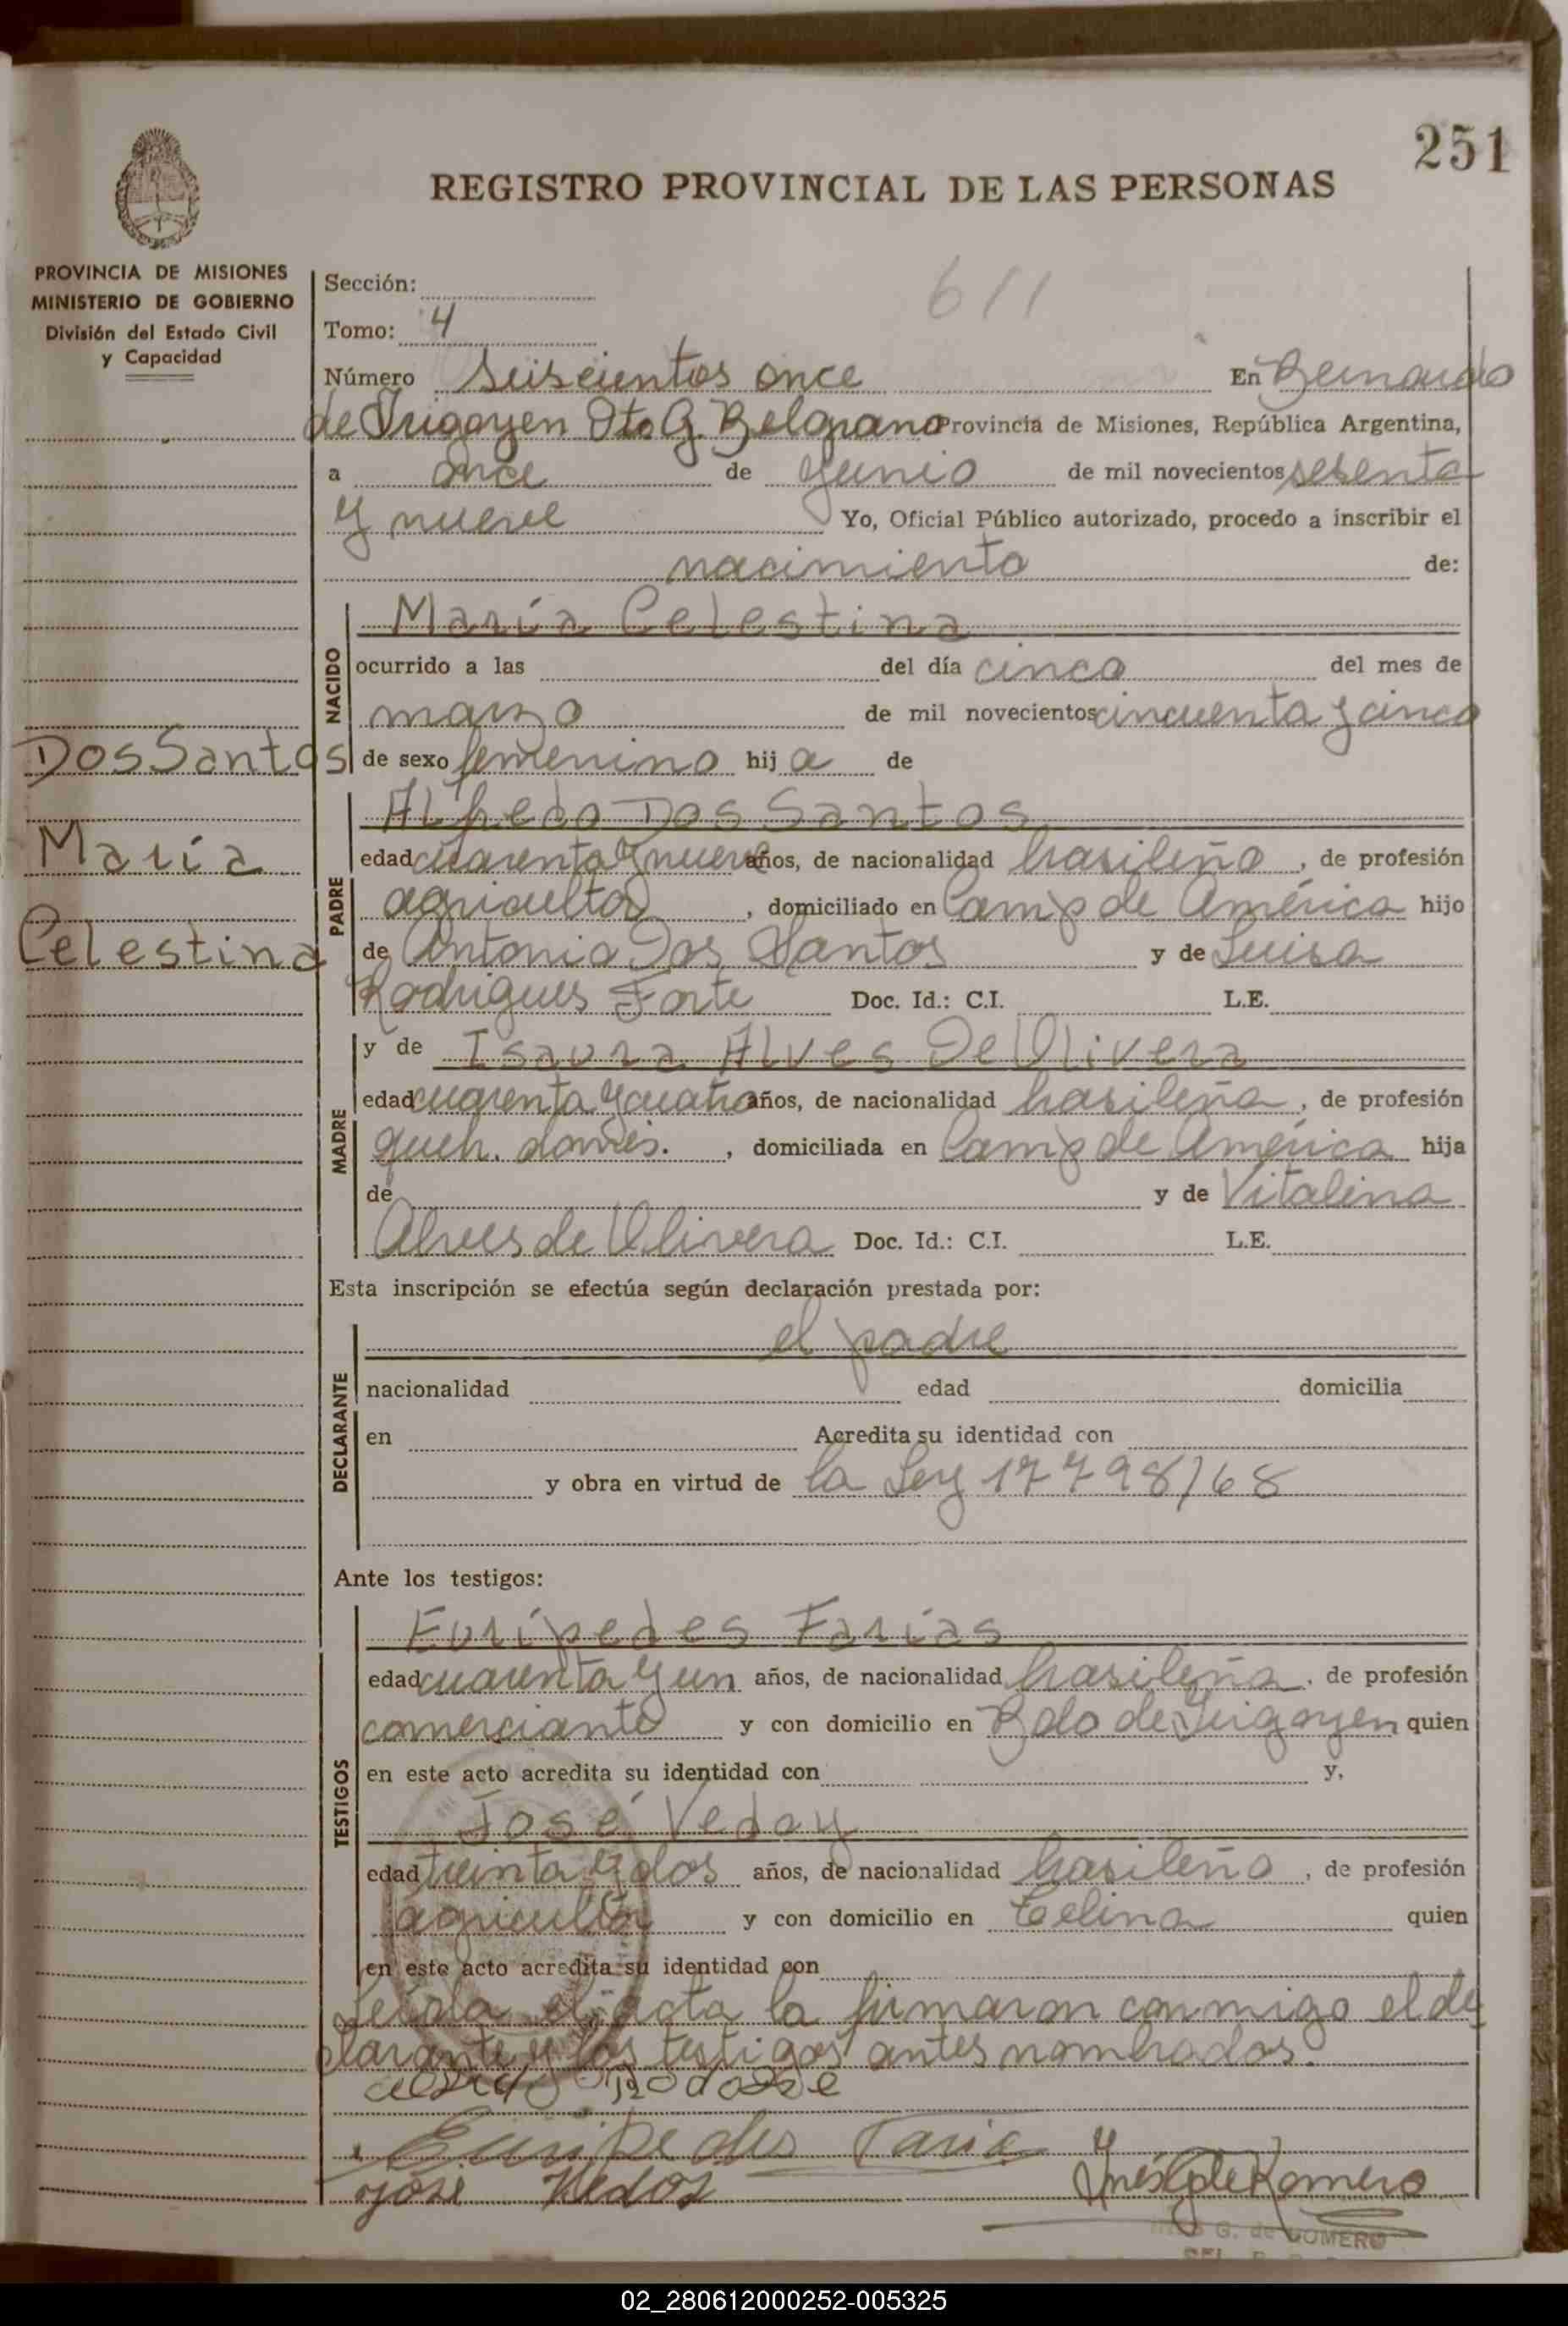 251
REGISTRO PROVINCIAL DE LAS PERSONAS
PROVINCIA DE MISIONES
MINISTERIO DE GOBIERNO
División del Estado Civil
y Capacidad
Sección:
611
Tomo: 4
Número Seiscientos once En Bernardo
de Irigoyen Dto G. Belgrano Provincia de Misiones, República Argentina,
a once de Junio de mil novecientos sesenta
y nueve Yo, Oficial Público autorizado, procedo a inscribir el
nacimiento de:
NACIDO
María Celestina
ocurrido a las del día cinco del mes de
marzo de mil novecientos cincuenta y cinco
Dos Santos
de sexo femenino hij a de
María
Celestina
PADRE
Alfredo Dos Santos
edad cuarenta y nueve años, de nacionalidad brasileño, de profesión
agricultor, domiciliado en Camp de América hijo
de Antonio Dos Santos y de Luisa
Rodrigues Forte Doc. Id.: C.I. L.E.
MADRE
y de Isaura Alves De Olivera
edad cuarenta y cuatro años, de nacionalidad brasileña, de profesión
queh. domés. , domiciliada en Camp de América hija
de y de Vitalina
Alves de Olivera Doc. Id.: C.I. L.E.
Esta inscripción se efectúa según declaración prestada por:
DECLARANTE
el padre
nacionalidad edad domicilia
en Acredita su identidad con
y obra en virtud de la Ley 17798/68
Ante los testigos:
TESTIGOS
Eurípedes Farías
edad cuarenta y un años, de nacionalidad brasileña, de profesión
comerciante y con domicilio en Bdo de Irigoyen quien
en este acto acredita su identidad con y,
José Vedoy
edad treinta y dos años, de nacionalidad brasileño, de profesión
agricultor y con domicilio en Celina quien
en este acto acredita su identidad con
Leída el acta la firmaron conmigo el de
clarante y los testigos antes nombrados.
Euripedes Faria
José Vedoy
Inés G de Romero
G. de ROMERO
02_280612000252-005325